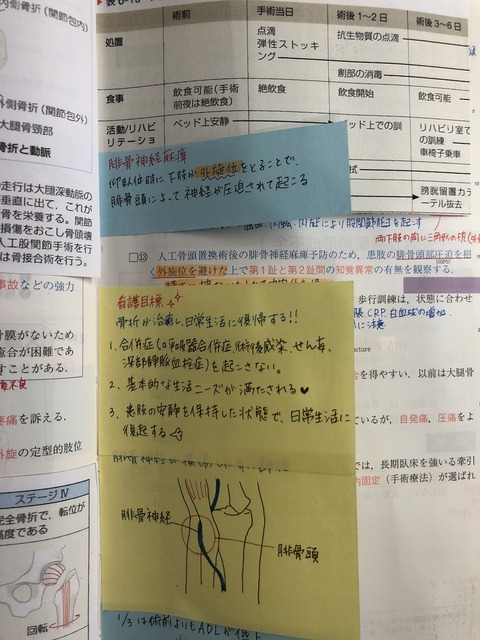 術前
手術当日
術後1〜2日
術後3〜6日
処置
点滴
弾性ストッキ
ング
抗生物質の点滴
創部の消毒
食事
飲食可能(手術
前夜は絶飲食)
絶飲食
飲食開始
飲食可能
活動/リハビ
リテーション
ベッド上安静
ッド上での訓
リハビリ室で
の訓練
車椅子乗車
膀胱留置カテ
ーテル抜去
腓骨神経麻痺
仰臥位時に下肢が外旋位をとることで、
腓骨頭によって神経が圧迫されて起こる
内側骨折(関節包内)
外側骨折(関節包外)
大腿骨頸部
骨折と動脈
走行は大腿深動脈の
垂直に出て、これが
骨を栄養する。関節
損傷をおこし骨頭壊
人工股関節手術を行
は骨接合術を行う。
⑬ 人工骨頭置換術後の腓骨神経麻痺予防のため、患肢の腓骨頭部圧迫を招
く外旋位を避けた上で第1趾と第2趾間の知覚異常の有無を観察する。
事故などの強力
歩行訓練は、状態に合わせ
看護目標
骨折が治癒し、日常生活に復帰する!!
1. 合併症(呼吸器合併症、術後感染、せん妄、
深部静脈血栓症)を起こさない。
2. 基本的な生活ニーズが満たされる♥
3. 患肢の安静を保持した状態で、日常生活に
復起する
骨膜がないため
癒合が困難であ
すことがある.
を得やすい. 以前は大腿骨
疼痛を訴える.
ているが, 自発痛, 圧痛をよ
外旋の定型的肢位
では, 長期臥床を強いる牽引
内固定(手術療法)が選ばれ
ステージⅣ
完全骨折で, 転位が
高度である
回転
腓骨神経
腓骨頭
1/3は術前よりもADLが低下